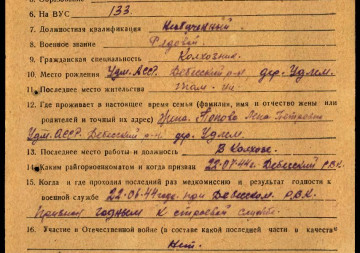 6. На ВУС 133
7. Должностная квалификация Необученный
8. Военное звание Рядовой
9. Гражданская специальность Колхозник
10. Место рождения Удм. АССР. Дебесский р-н. дер. Удлем.
11. Последнее место жительства
12. Где проживает в настоящее время семья (фамилия, имя и отчество жены или
родителей и точный их адрес) Жена. Попова
Удм. АССР. Дебесский р-н дер. Удлем.
13. Последнее место работы и должность В Колхозе.
14. Каким райгорвоенкоматом и когда призван 22.07.44г. Дебесский РВК.
15. Когда и где проходил последний раз медкомиссию и результат годности к
военной службе 22.07.44 года при Дебесском РВК.
годным к строевой службе.
16. Участие в Отечественной войне (в составе какой последней части и качества
Нет.